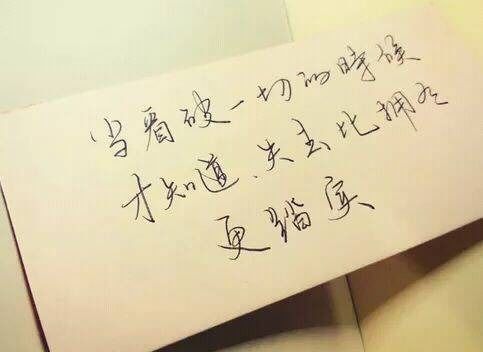 当看破一切的時候
才知道、失去比拥有
更踏实